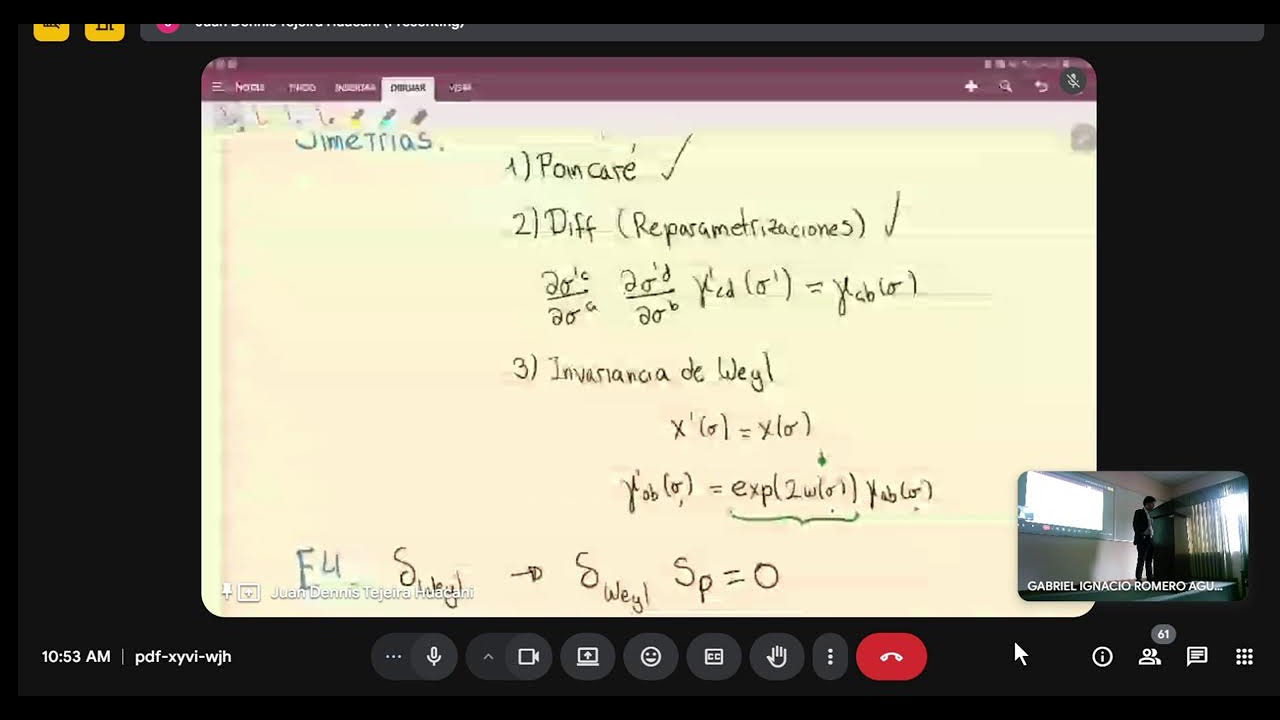 Juan Dennis Tejeira Huacani (Presenting)
INSERTAR DIBUJAR VISTA
Simetrías.
1) Poincaré ✓
2) Diff (Reparametrizaciones) ✓
∂σ'ᶜ/∂σᵃ ∂σ'ᵈ/∂σᵇ γ'cd(σ') = γab(σ)
3) Invariancia de Weyl
X'(σ) = X(σ)
γ'ab(σ) = exp(2ω(σ)) γab(σ)
E4. δWeyl → δWeyl Sp = 0
Juan Dennis Tejeira Huacani
GABRIEL IGNACIO ROMERO AGU...
10:53 AM | pdf-xyvi-wjh
61